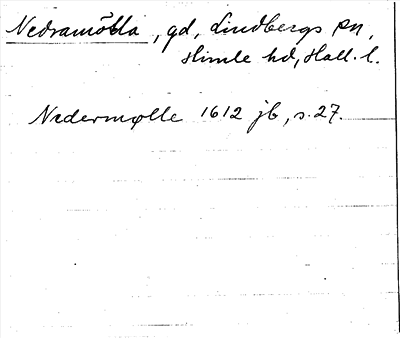 Nedramölla, gd, Lindbergs sn,
Himle hd, Hall. l.
Nedermølle 1612 jb, s. 27.